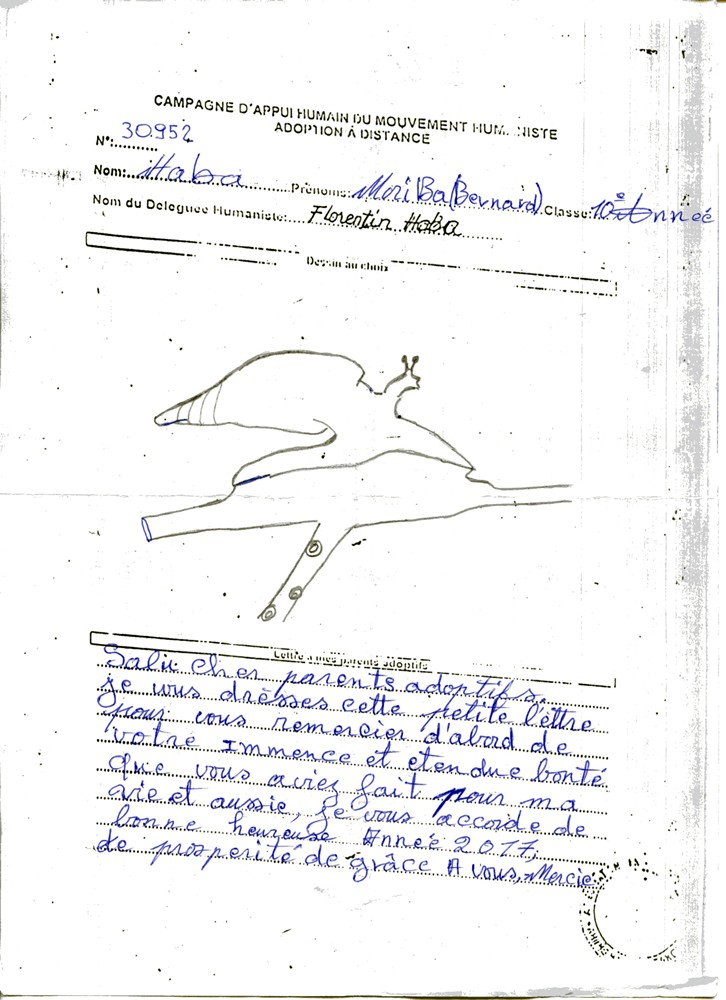 CAMPAGNE D'APPUI HUMAIN DU MOUVEMENT HUM. NISTE
ADOPTION À DISTANCE
N°:..........30.952
Nom:...Haba...Prénoms:.Mori Ba (Bernard).Classe:10e Année
Nom du Déléguée Humaniste:...Florentin Haba......
Dessin au choix
Lettre à mes parents adoptifs
Salu cher parents adoptifs,
je vous drèsses cette petite l'éttre
pour vous remercier d'abord de
votre Immence et etendue bonté
que vous aviez fait pour ma
vie et aussie, je vous accorde de
bonne heureuse Année 2017,
de prosperité de grâce A vous, Mercie